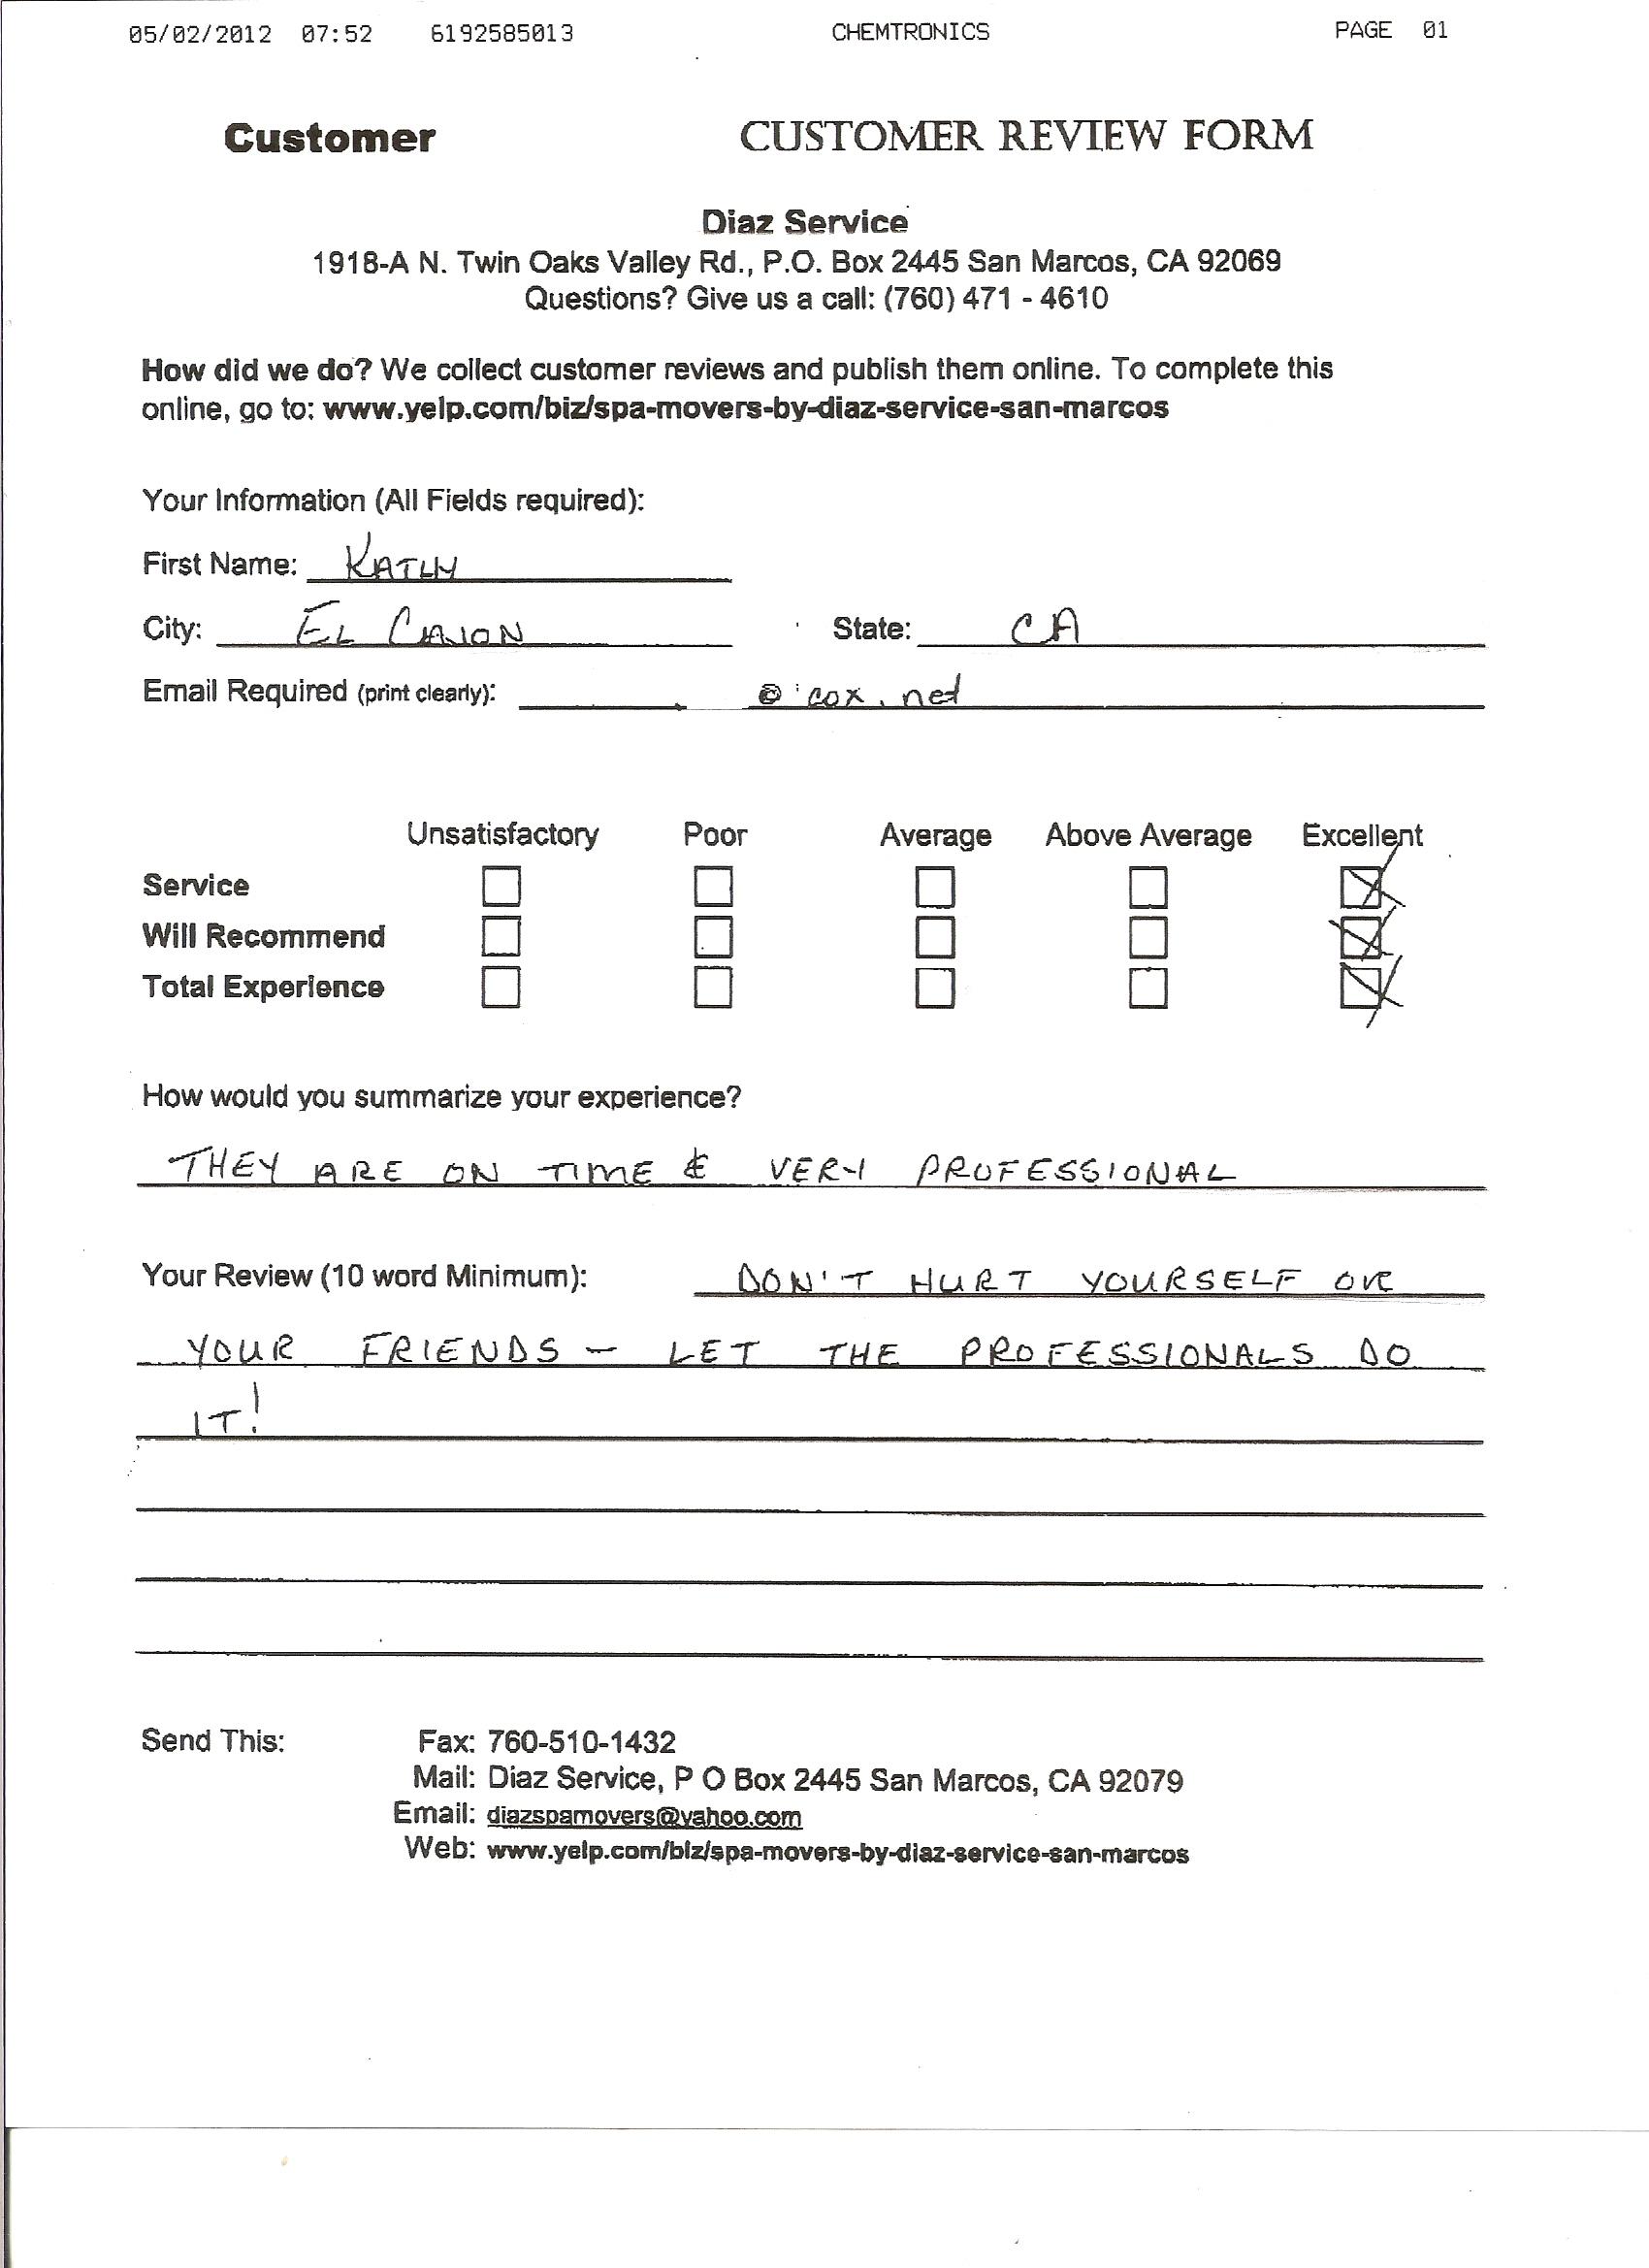 05/02/2012 07:52 6192585013 CHEMTRONICS PAGE 01
Customer CUSTOMER REVIEW FORM
Diaz Service
1918-A N. Twin Oaks Valley Rd., P.O. Box 2445 San Marcos, CA 92069
Questions? Give us a call: (760) 471 - 4610
How did we do? We collect customer reviews and publish them online. To complete this
online, go to: www.yelp.com/biz/spa-movers-by-diaz-service-san-marcos
Your Information (All Fields required):
First Name: KATHY
City: EL CAJON State: CA
Email Required (print clearly): @cox.net
Unsatisfactory Poor Average Above Average Excellent
Service
Will Recommend
Total Experience
How would you summarize your experience?
THEY ARE ON TIME & VERY PROFESSIONAL
Your Review (10 word Minimum): DON'T HURT YOURSELF OR
YOUR FRIENDS - LET THE PROFESSIONALS DO
IT!
Send This: Fax: 760-510-1432
Mail: Diaz Service, P O Box 2445 San Marcos, CA 92079
Email: diazspamovers@yahoo.com
Web: www.yelp.com/biz/spa-movers-by-diaz-service-san-marcos